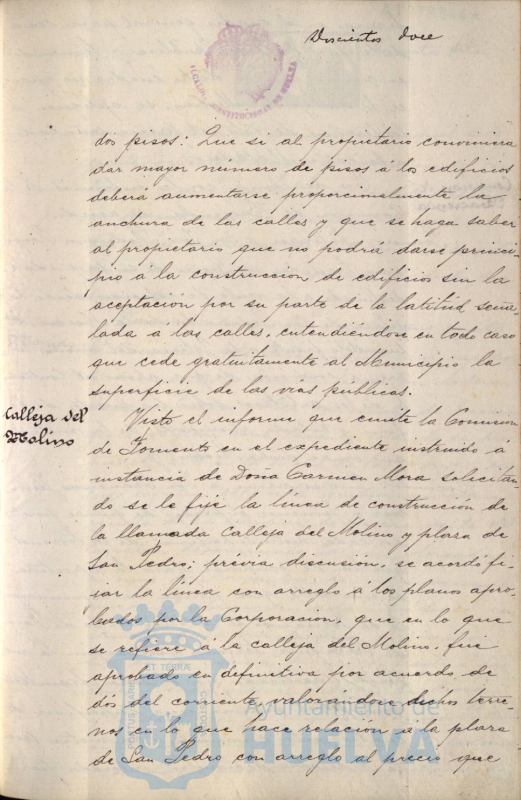 Doscientos doce
ALCALDIA CONSTITUCIONAL DE HUELVA
dos pisos: Que si al propietario conviniera
dar mayor número de pisos á los edificios
deberá aumentarse proporcionalmente la
anchura de las calles y que se haga saber
al propietario que no podrá darse princi-
pio á la construccion de edificios sin la
aceptación por su parte de la latitud seña-
lada á las calles, entendiéndose en todo caso
que cede gratuitamente al Municipio la
superficie de las vías públicas.
Calleja del
Molino
Visto el informe que emite la Comision
de Fomento en el expediente instruido á
instancia de Doña Carmen Mora solicitan-
do se le fije la línea de construcción de
la llamada Calleja del Molino y plaza de
San Pedro; prévia discusión, se acordó fi-
jar la línea con arreglo á los planos apro-
bados por la Corporacion, que en lo que
se refiere á la calleja del Molino, fué
aprobado en definitiva por acuerdo de
dos del corriente, valorándose dichos terre-
nos en lo que hace relacion a la plaza
de San Pedro con arreglo al precio que
Ayuntamiento de
HUELVA